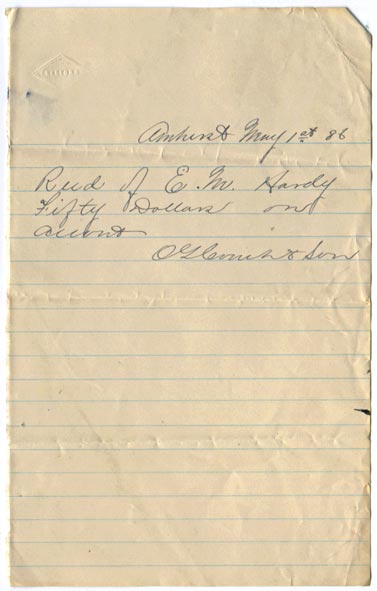 Amherst May 1st 86
Recd of E. M. Hardy
Fifty Dollars on
account
& Son